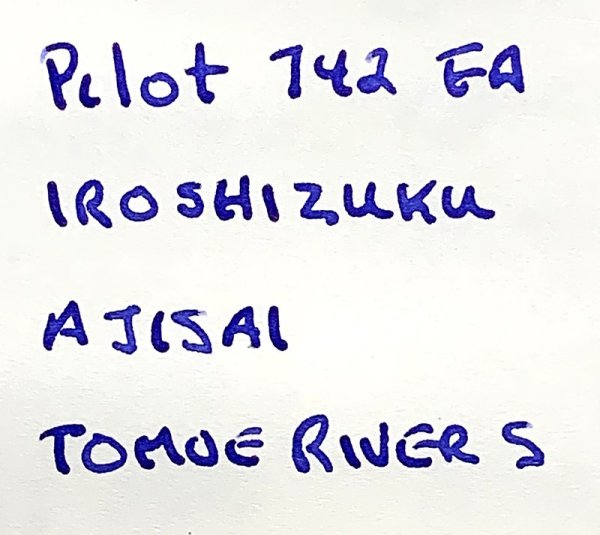 Pilot 742 FA
IROSHIZUKU
AJISAI
TOMOE RIVER S